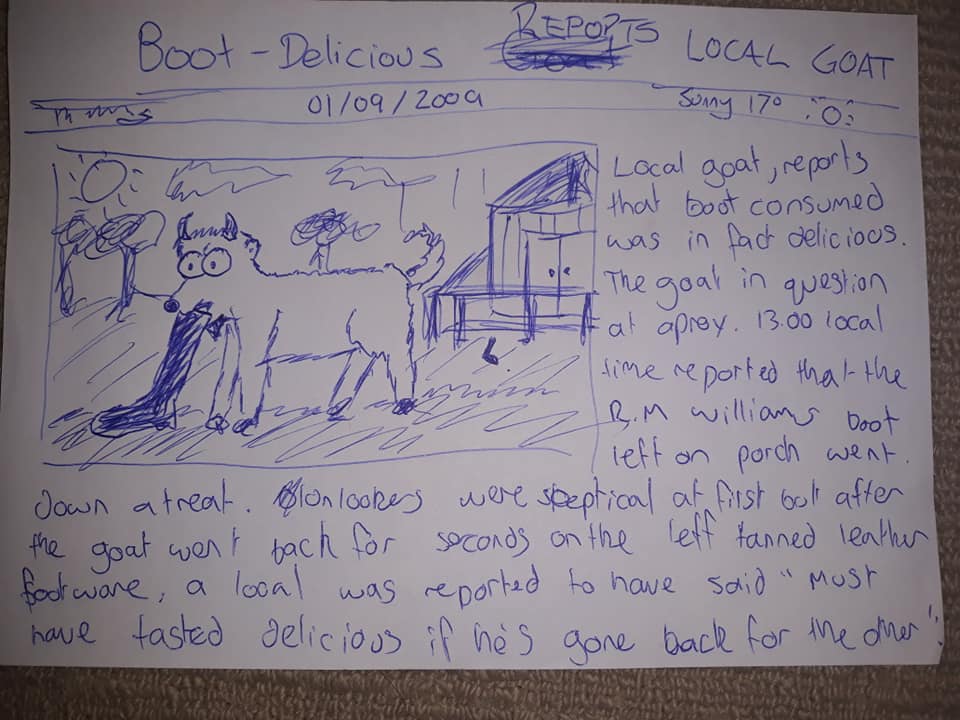 Boot - Delicious REPORTS LOCAL GOAT
01/09/2009 Sunny 17°
Local goat, reports
that boot consumed
was in fact delicious.
The goat in question
at aprox. 13.00 local
time reported that the
R.M williams boot
left on porch went.
down a treat. Onlookers were skeptical at first but after
the goat went back for seconds on the left tanned leather
footware, a local was reported to have said " Must
have tasted delicious if he's gone back for the other".